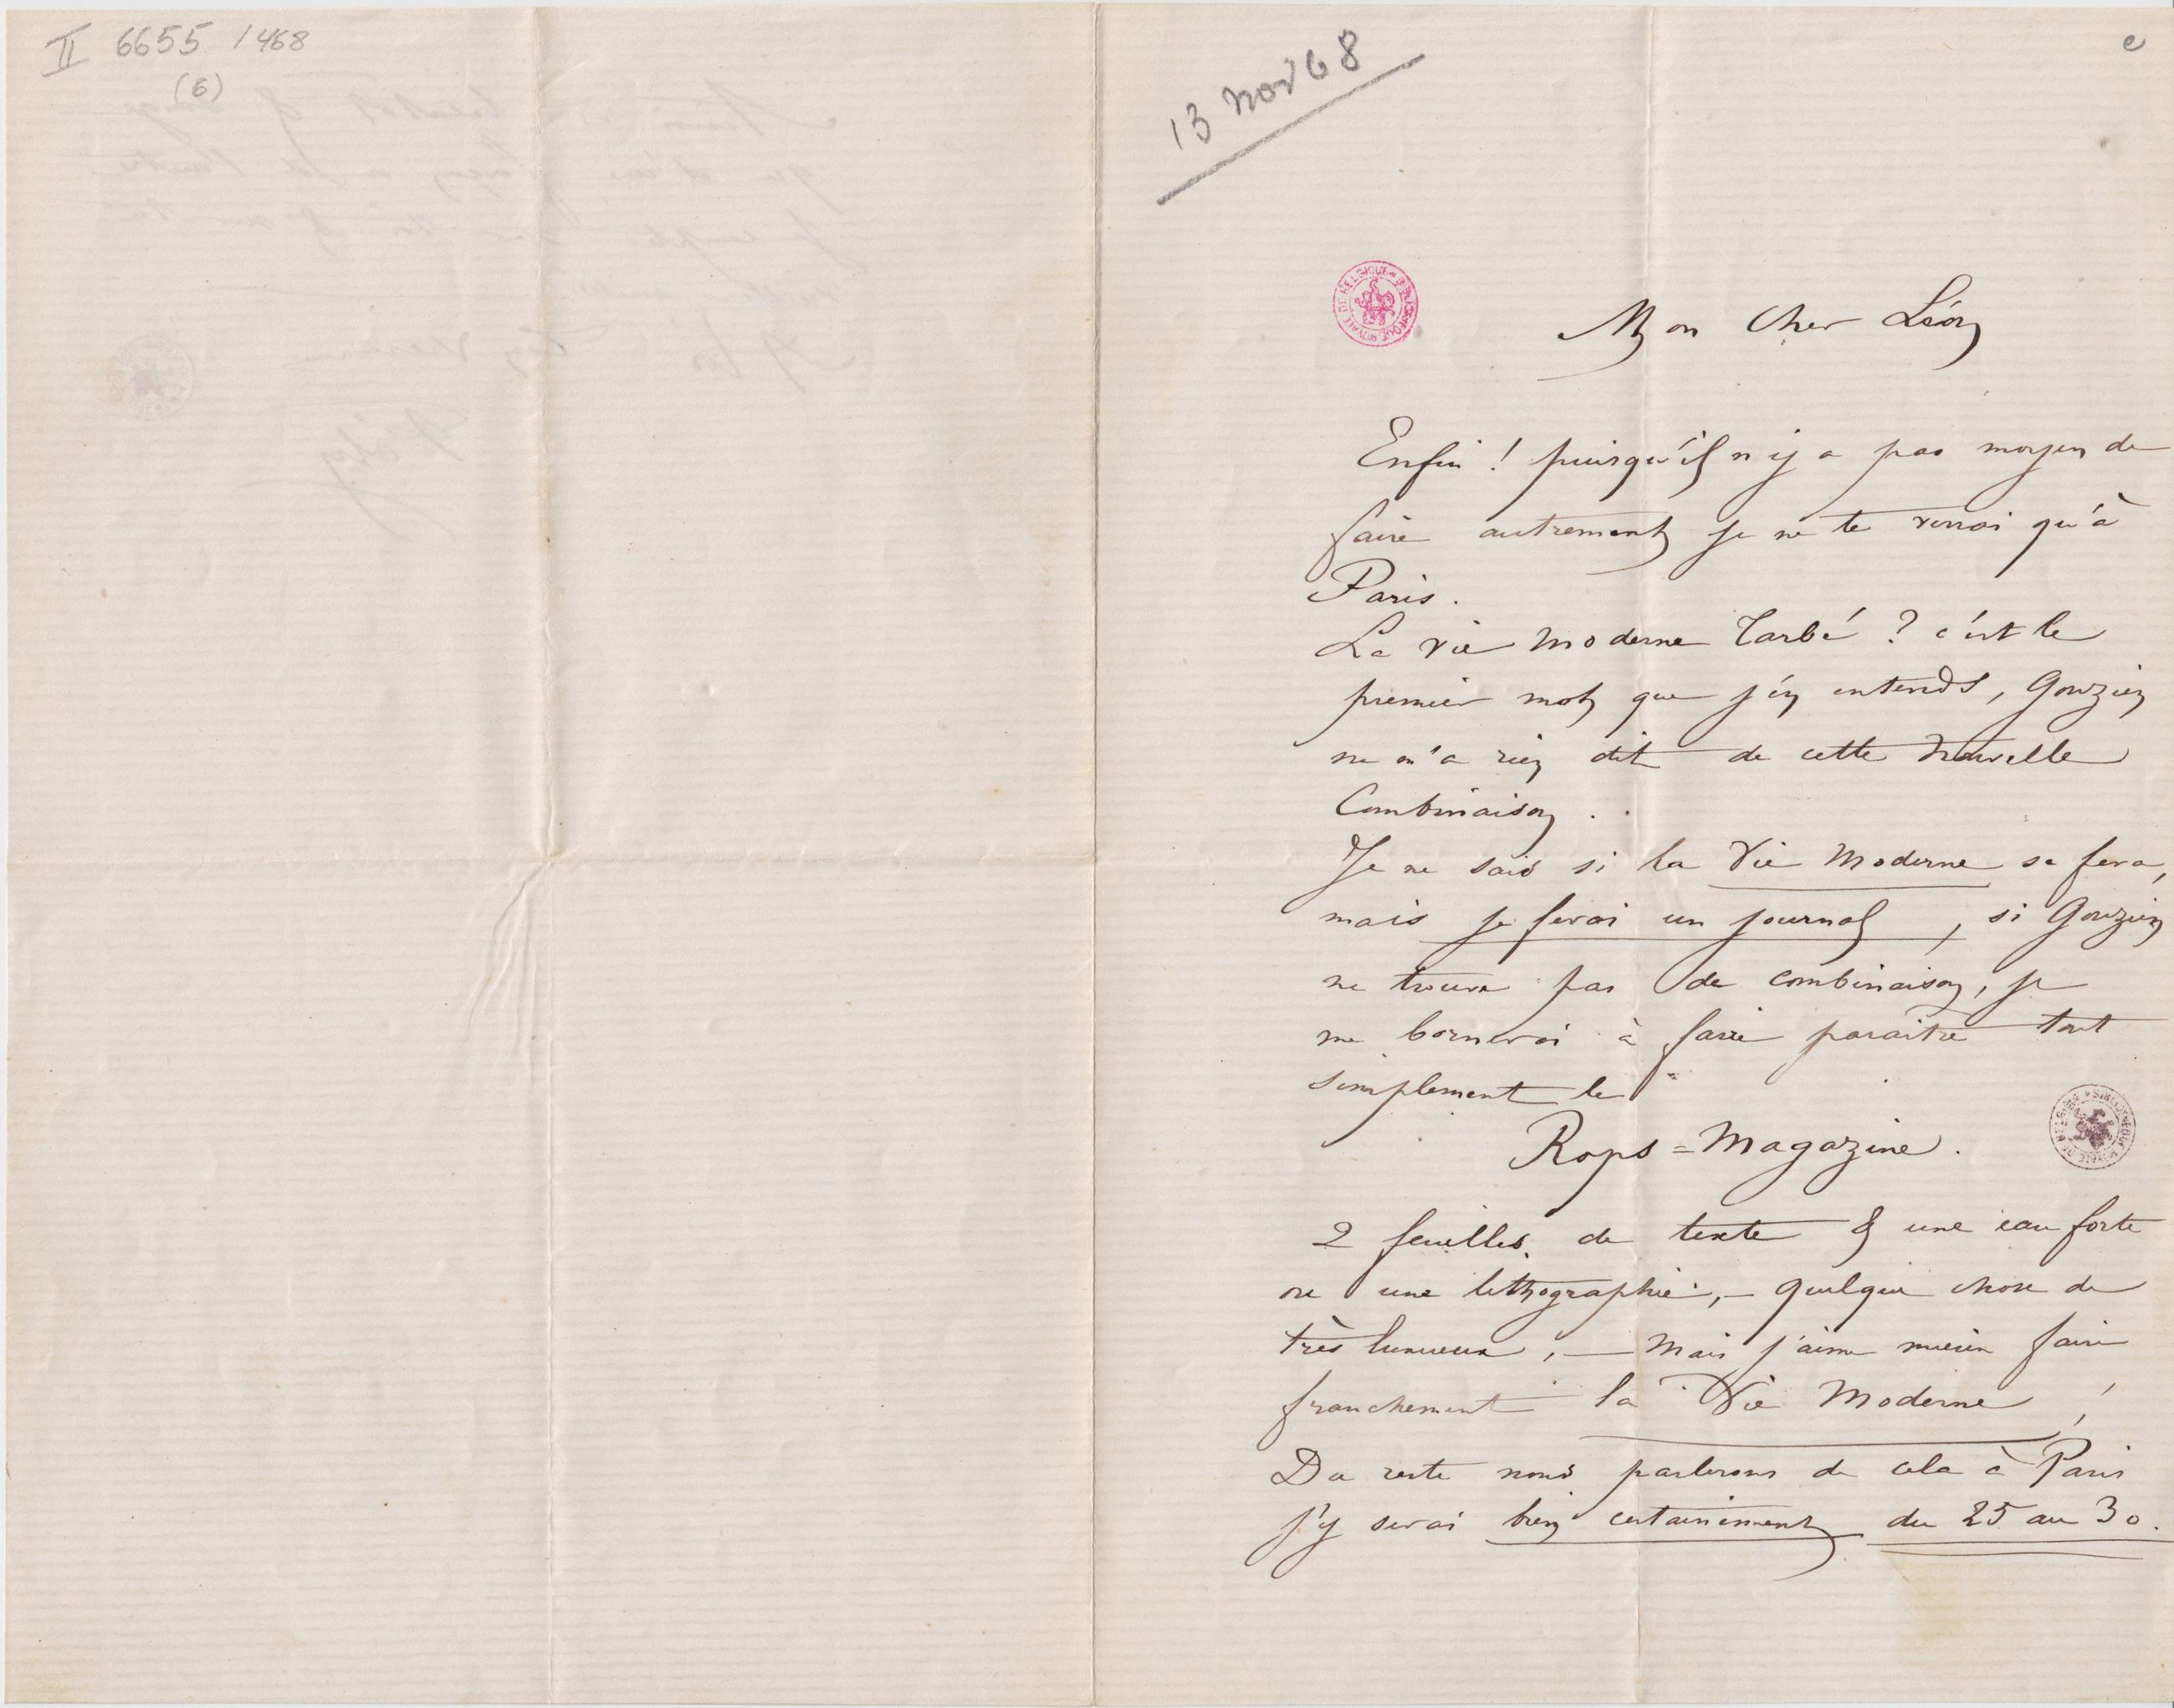 II 6655 /468
(6)
13 Nov 68
e
BIBLIOTHEQUE ROYALE DE BELGIQUE
Mon Cher Léon
Enfin ! puisqu'il n'y a pas moyen de
faire autrement je ne te verrai qu'à
Paris.
La vie Moderne Tarbé ? c'est le
premier mot que j'en entends, Gouzien
ne m'a rien dit de cette Nouvelle
Combinaison . .
Je ne sais si la Vie Moderne se fera,
mais je ferai un journal, si Gouzien
ne trouve pas de combinaison, je
me bornerai à faire paraitre tout
simplement le
Rops=Magazine.
BIBLIOTHEQUE ROYALE DE BELGIQUE
2 feuilles de texte & une eau forte
ou une lithographie, – quelque chose de
très luxueux, — Mais j'aime mieux faire
franchement la Vie Moderne !
Du reste nous parlerons de cela à Paris
j'y serai bien certainement du 25 au 30.